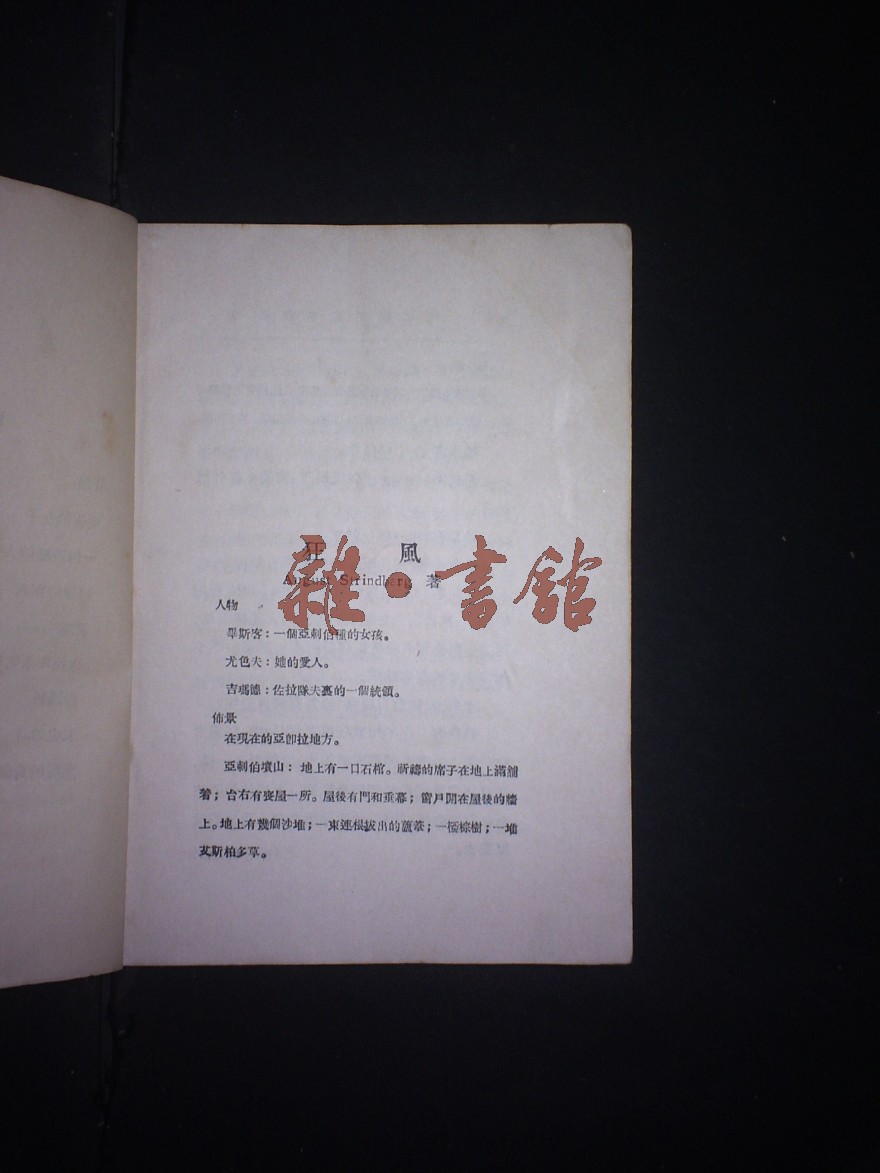 狂風
August Strindberg 著
雜·書館
人物
畢斯客：一個亞剌伯種的女孩。
尤色夫：她的愛人。
吉瑪德：佐拉隊夫裏的一個統領。
佈景
在現在的亞卽拉地方。
亞剌伯墳山：地上有一口石棺。祈禱的席子在地上滿舖
着；台右有喪屋一所。屋後有門和垂幕；窗戶開在屋後的牆
上。地上有幾個沙堆；一束連根拔出的蘆葦；一椶棕樹；一堆
艾斯柏多草。